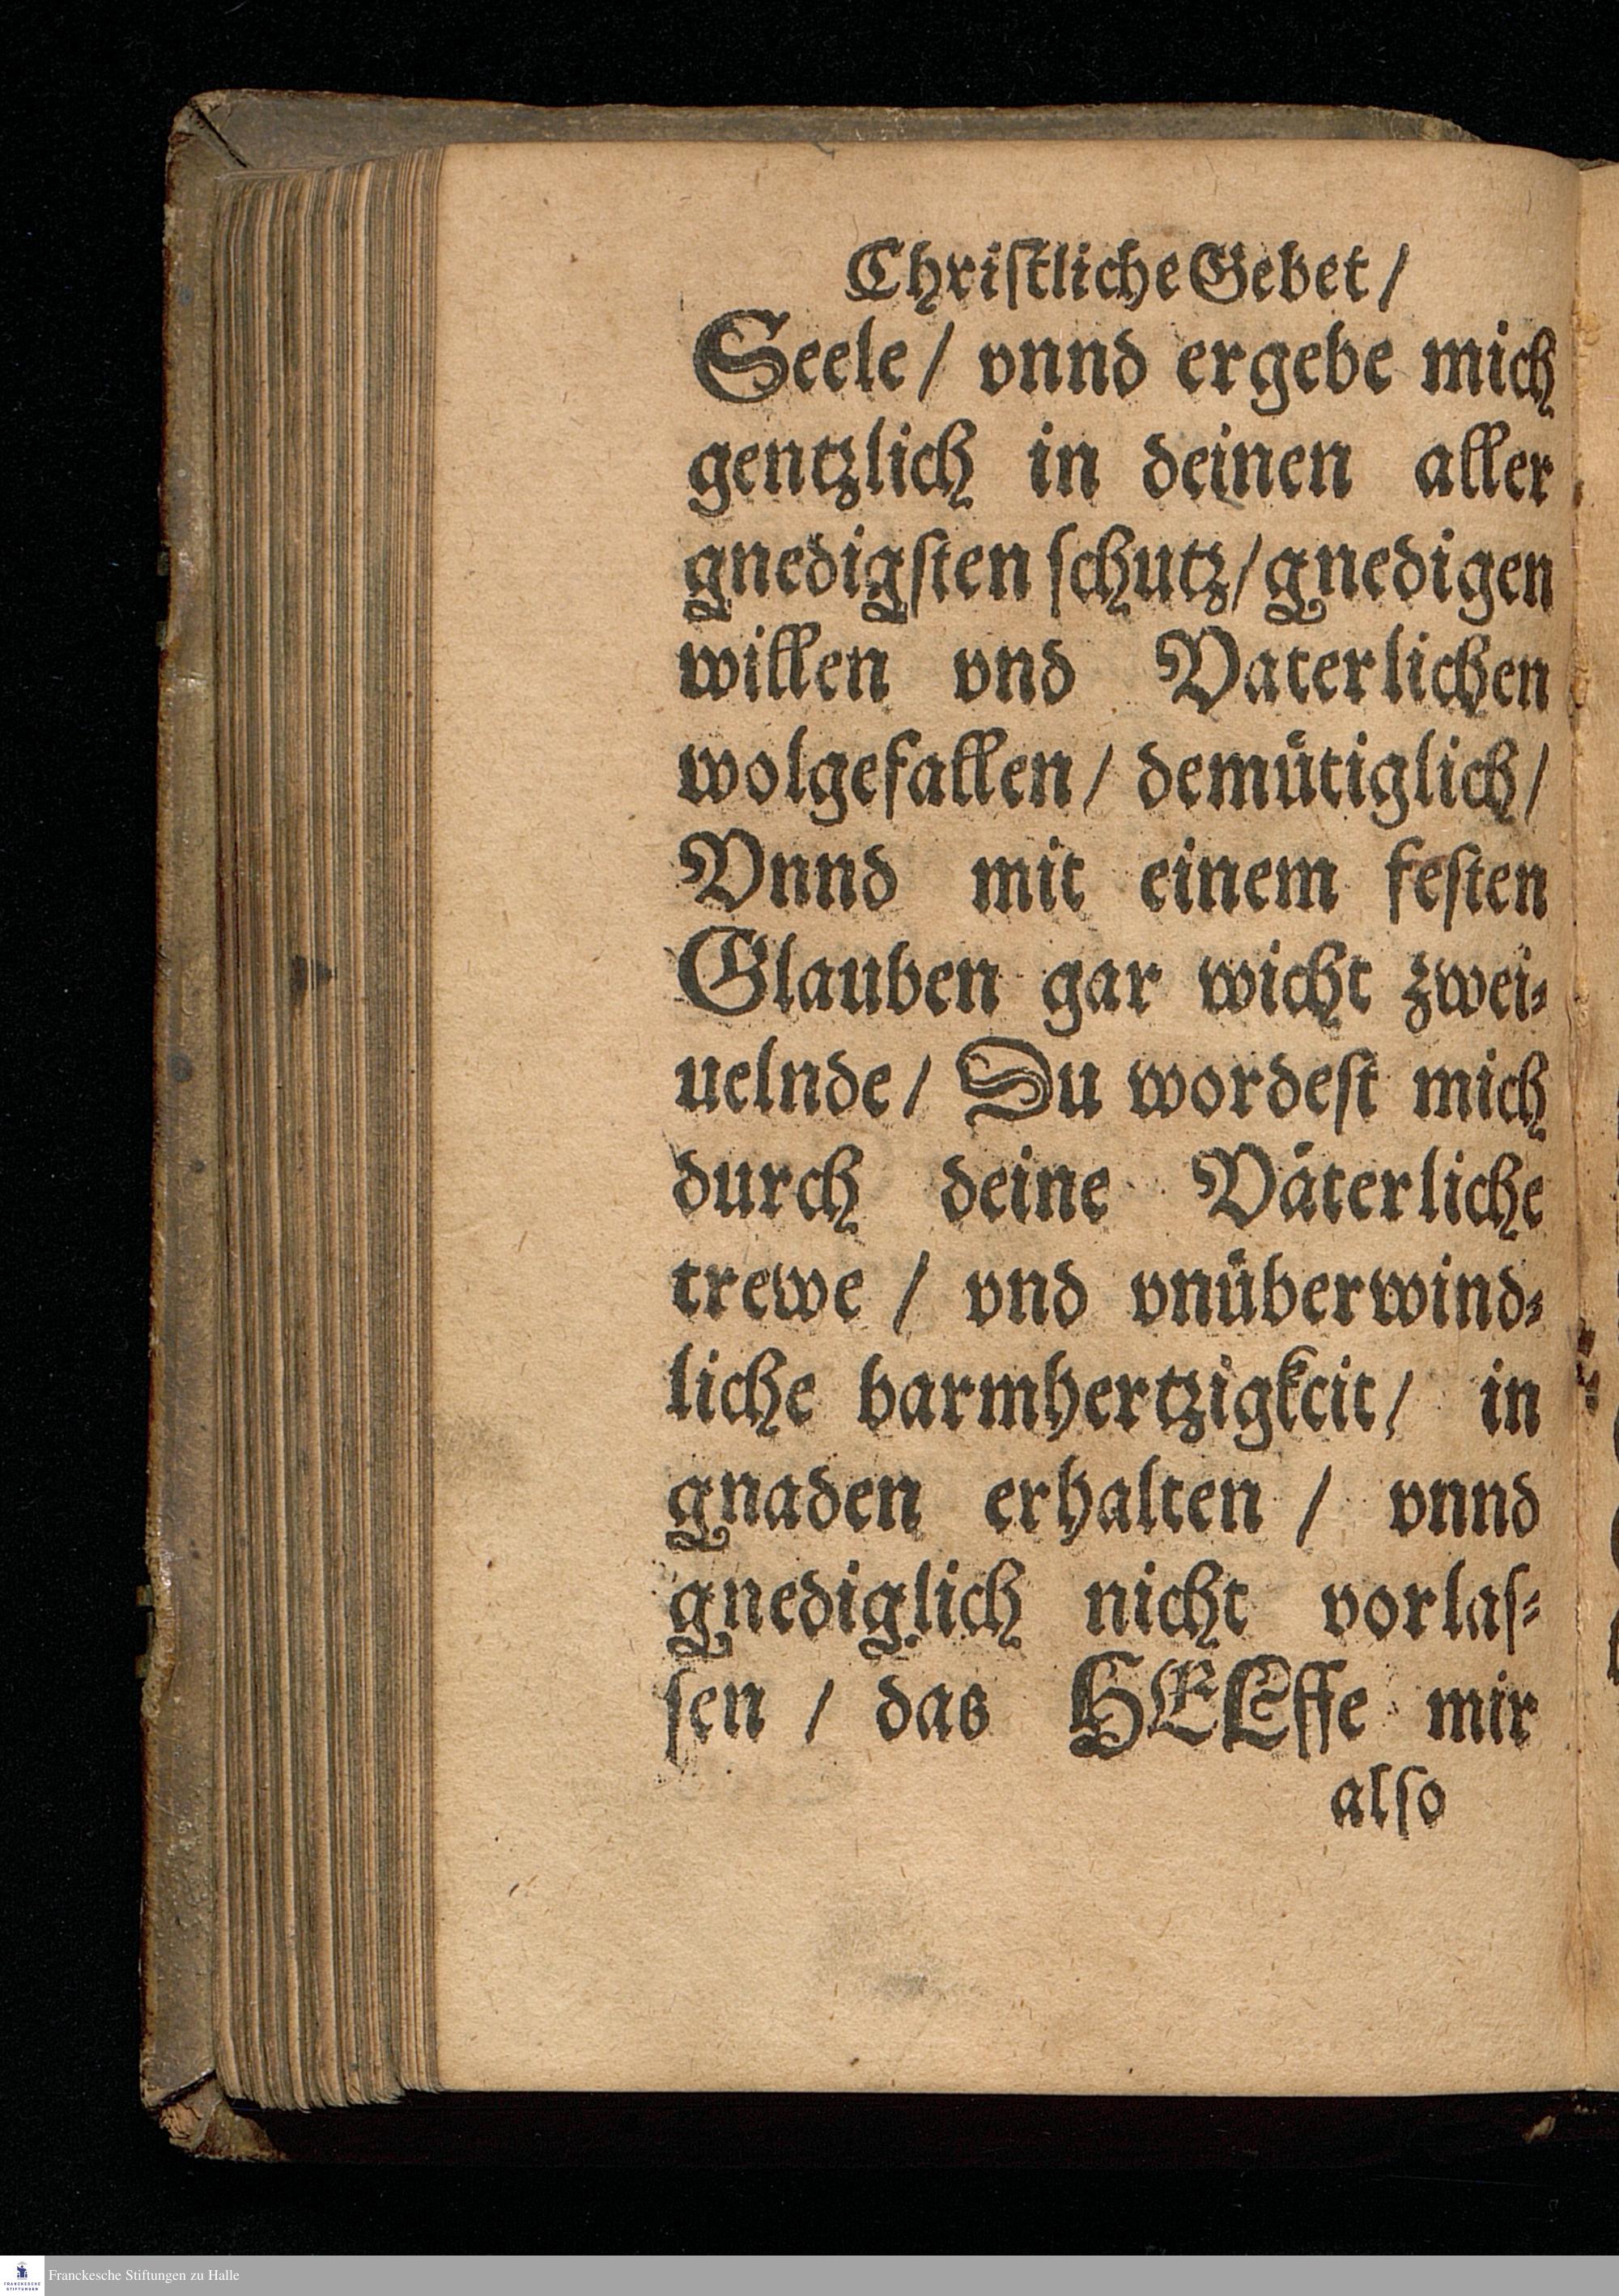 Chriſtliche Gebet /
Seele / vnnd ergebe mich
gentzlich in deinen aller
gnedigſten ſchutz / gnedigen
willen vnd Vaterlichen
wolgefallen / demuͤtiglich /
Vnnd mit einem feſten
Glauben gar wicht zwei⸗
uelnde / Du wordeſt mich
durch deine Vaͤterliche
trewe / vnd vnuͤberwind⸗
liche barmhertzigkeit / in
gnaden erhalten / vnnd
gnediglich nicht vorlaſ⸗
ſen / das HELffe mir
alſo
FRANCKESCHE STIFTUNGEN
Franckesche Stiftungen zu Halle